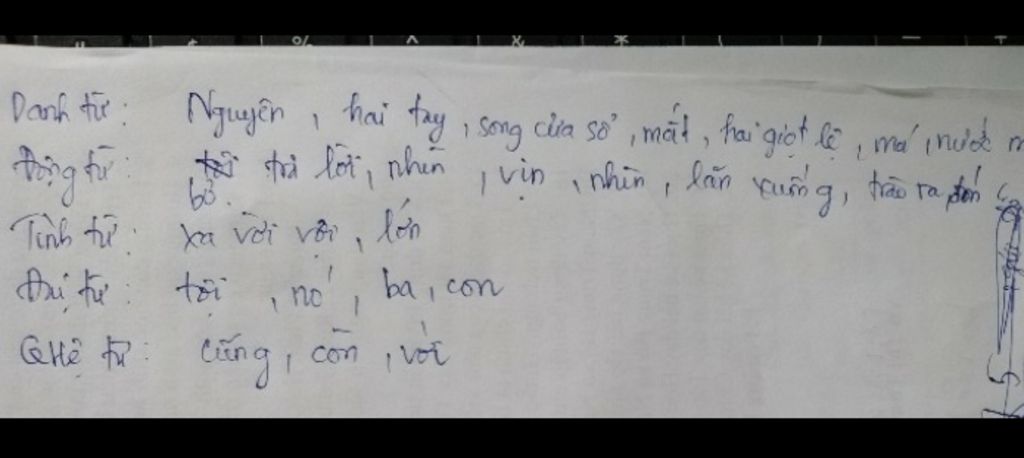 Danh từ: Nguyên, hai tay, song cửa sổ, mắt, hai giọt lệ, má, nước m
Động từ: trả lời, nhìn, vịn, nhìn, lăn xuống, trào ra, đón
bỏ.
Tính từ: xa vời vợi, lớn
Đại từ: tôi, nó, ba, con
QHệ từ: cũng, còn, với